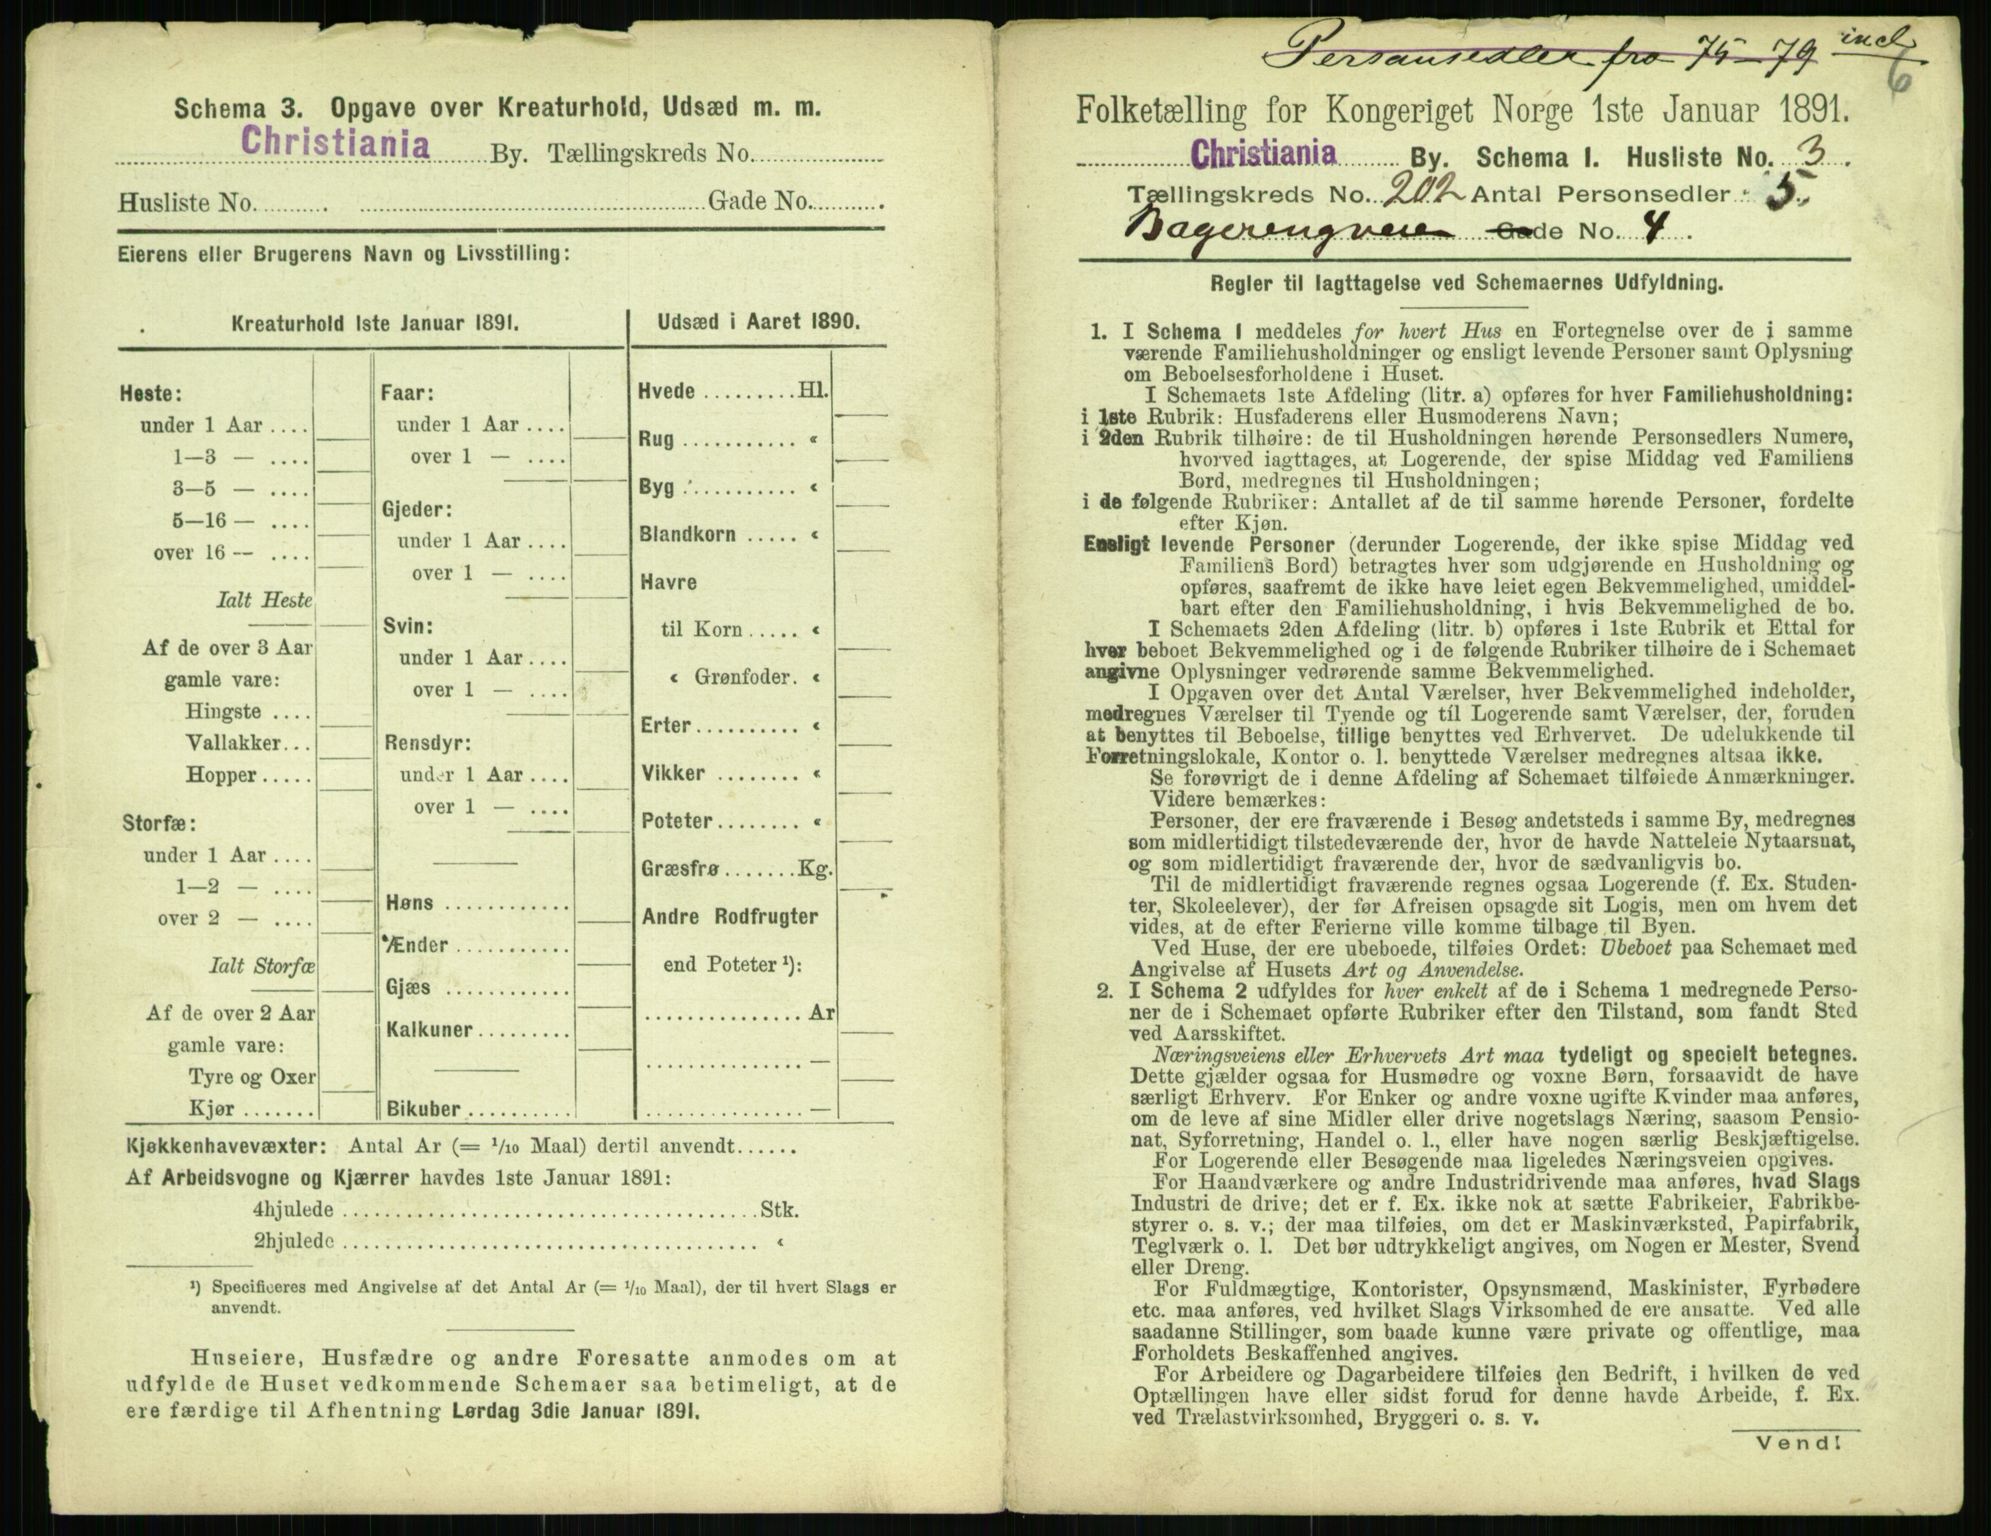 Schema 3. Opgave over Kreaturhold, Udsæd m. m.
Christiania By. Tællingskreds No.
Husliste No. Gade No.
Eierens eller Brugerens Navn og Livsstilling:
Kreaturhold 1ste Januar 1891.
Heste:
under 1 Aar ....
1—3 — ....
3—5 — ....
5—16 — ....
over 16 — ....
Ialt Heste
Af de over 3 Aar
gamle vare:
Hingste ....
Vallakker...
Hopper.....
Storfæ:
under 1 Aar ....
1—2 — ....
over 2 — ....
Ialt Storfæ
Af de over 2 Aar
gamle vare:
Tyre og Oxer
Kjør .......
Faar:
under 1 Aar ....
over 1 — ....
Gjeder:
under 1 Aar ....
over 1 — ....
Svin:
under 1 Aar ....
over 1 — ....
Rensdyr:
under 1 Aar ....
over 1 — ....
Høns ............
Ænder ...........
Gjæs ............
Kalkuner.........
Bikuber..........
Udsæd i Aaret 1890.
Hvede .........Hl.
Rug ........... «
Byg ........... «
Blandkorn ..... «
Havre
til Korn ..... «
« Grønfoder. «
Erter .......... «
Vikker ........ «
Poteter........ «
Græsfrø .......Kg.
Andre Rodfrugter
end Poteter ¹):
............... Ar
............... —
............... —
Kjøkkenhavevæxter: Antal Ar (= 1/10 Maal) dertil anvendt......
Af Arbeidsvogne og Kjærrer havdes 1ste Januar 1891:
4hjulede ........................................Stk.
2hjulede ........................................ «
¹) Specificeres med Angivelse af det Antal Ar (= 1/10 Maal), der til hvert Slags er
anvendt.
Huseiere, Husfædre og andre Foresatte anmodes om at
udfylde de Huset vedkommende Schemaer saa betimeligt, at de
ere færdige til Afhentning Lørdag 3die Januar 1891.
Personsedler fra 75-79 incl
6
Folketælling for Kongeriget Norge 1ste Januar 1891.
Christiania By. Schema 1. Husliste No. 3.
Tællingskreds No. 202 Antal Personsedler 5.
Bagerengveien Gade No. 4.
Regler til Iagttagelse ved Schemaernes Udfyldning.
1. I Schema 1 meddeles for hvert Hus en Fortegnelse over de i samme
værende Familiehusholdninger og ensligt levende Personer samt Oplysning
om Beboelsesforholdene i Huset.
I Schemaets 1ste Afdeling (litr. a) opføres for hver Familiehusholdning:
i 1ste Rubrik: Husfaderens eller Husmoderens Navn;
i 2den Rubrik tilhøire: de til Husholdningen hørende Personsedlers Numere,
hvorved iagttages, at Logerende, der spise Middag ved Familiens
Bord, medregnes til Husholdningen;
i de følgende Rubriker: Antallet af de til samme hørende Personer, fordelte
efter Kjøn.
Ensligt levende Personer (derunder Logerende, der ikke spise Middag ved
Familiens Bord) betragtes hver som udgjørende en Husholdning og
opføres, saafremt de ikke have leiet egen Bekvemmelighed, umiddel-
bart efter den Familiehusholdning, i hvis Bekvemmelighed de bo.
I Schemaets 2den Afdeling (litr. b) opføres i 1ste Rubrik et Ettal for
hver beboet Bekvemmelighed og i de følgende Rubriker tilhøire de i Schemaet
angivne Oplysninger vedrørende samme Bekvemmelighed.
I Opgaven over det Antal Værelser, hver Bekvemmelighed indeholder,
medregnes Værelser til Tyende og til Logerende samt Værelser, der, foruden
at benyttes til Beboelse, tillige benyttes ved Erhvervet. De udelukkende til
Forretningslokale, Kontor o. l. benyttede Værelser medregnes altsaa ikke.
Se forøvrigt de i denne Afdeling af Schemaet tilføiede Anmærkninger.
Videre bemærkes:
Personer, der ere fraværende i Besøg andetsteds i samme By, medregnes
som midlertidigt tilstedeværende der, hvor de havde Natteleie Nytaarsnat,
og som midlertidigt fraværende der, hvor de sædvanligvis bo.
Til de midlertidigt fraværende regnes ogsaa Logerende (f. Ex. Studen-
ter, Skoleelever), der før Afreisen opsagde sit Logis, men om hvem det
vides, at de efter Ferierne ville komme tilbage til Byen.
Ved Huse, der ere ubeboede, tilføies Ordet: Ubeboet paa Schemaet med
Angivelse af Husets Art og Anvendelse.
2. I Schema 2 udfyldes for hver enkelt af de i Schema 1 medregnede Perso-
ner de i Schemaet opførte Rubriker efter den Tilstand, som fandt Sted
ved Aarsskiftet.
Næringsveiens eller Erhvervets Art maa tydeligt og specielt betegnes.
Dette gjælder ogsaa for Husmødre og voxne Børn, forsaavidt de have
særligt Erhverv. For Enker og andre voxne ugifte Kvinder maa anføres,
om de leve af sine Midler eller drive nogetslags Næring, saasom Pensio-
nat, Syforretning, Handel o. l., eller have nogen særlig Beskjæftigelse.
For Logerende eller Besøgende maa ligeledes Næringsveien opgives.
For Haandværkere og andre Industridrivende maa anføres, hvad Slags
Industri de drive; det er f. Ex. ikke nok at sætte Fabrikeier, Fabrikbe-
styrer o. s. v.; der maa tilføies, om det er Maskinværksted, Papirfabrik,
Teglværk o. l. Det bør udtrykkeligt angives, om Nogen er Mester, Svend
eller Dreng.
For Fuldmægtige, Kontorister, Opsynsmænd, Maskinister, Fyrbødere
etc. maa anføres, ved hvilket Slags Virksomhed de ere ansatte. Ved alle
saadanne Stillinger, som baade kunne være private og offentlige, maa
Forholdets Beskaffenhed angives.
For Arbeidere og Dagarbeidere tilføies den Bedrift, i hvilken de ved
Optællingen have eller sidst forud for denne havde Arbeide, f. Ex.
ved Trælastvirksomhed, Bryggeri o. s. v.
Vend!